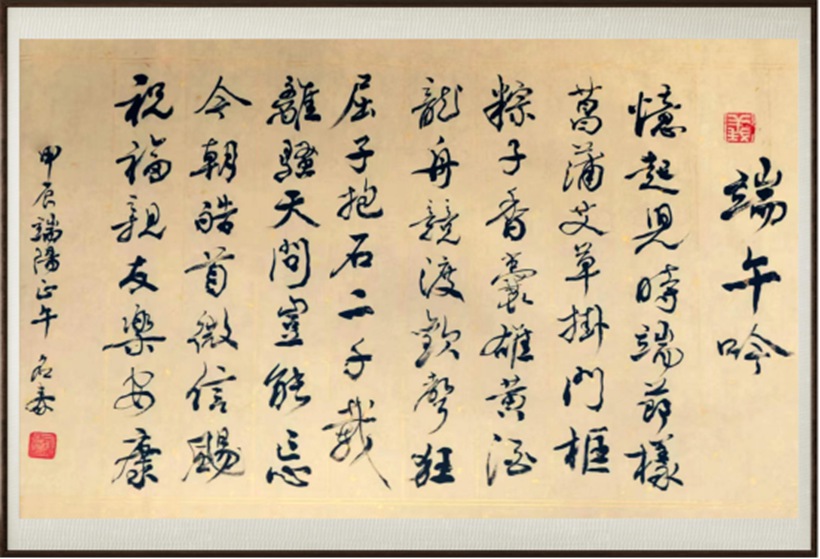 端午吟
憶起兒時端節樣
菖蒲艾草掛門框
粽子香囊雄黃酒
龍舟競渡歡聲狂
屈子抱石二千載
離騷天問豈能忘
今朝皓首微信賜
祝福親友樂安康
甲辰端陽正午